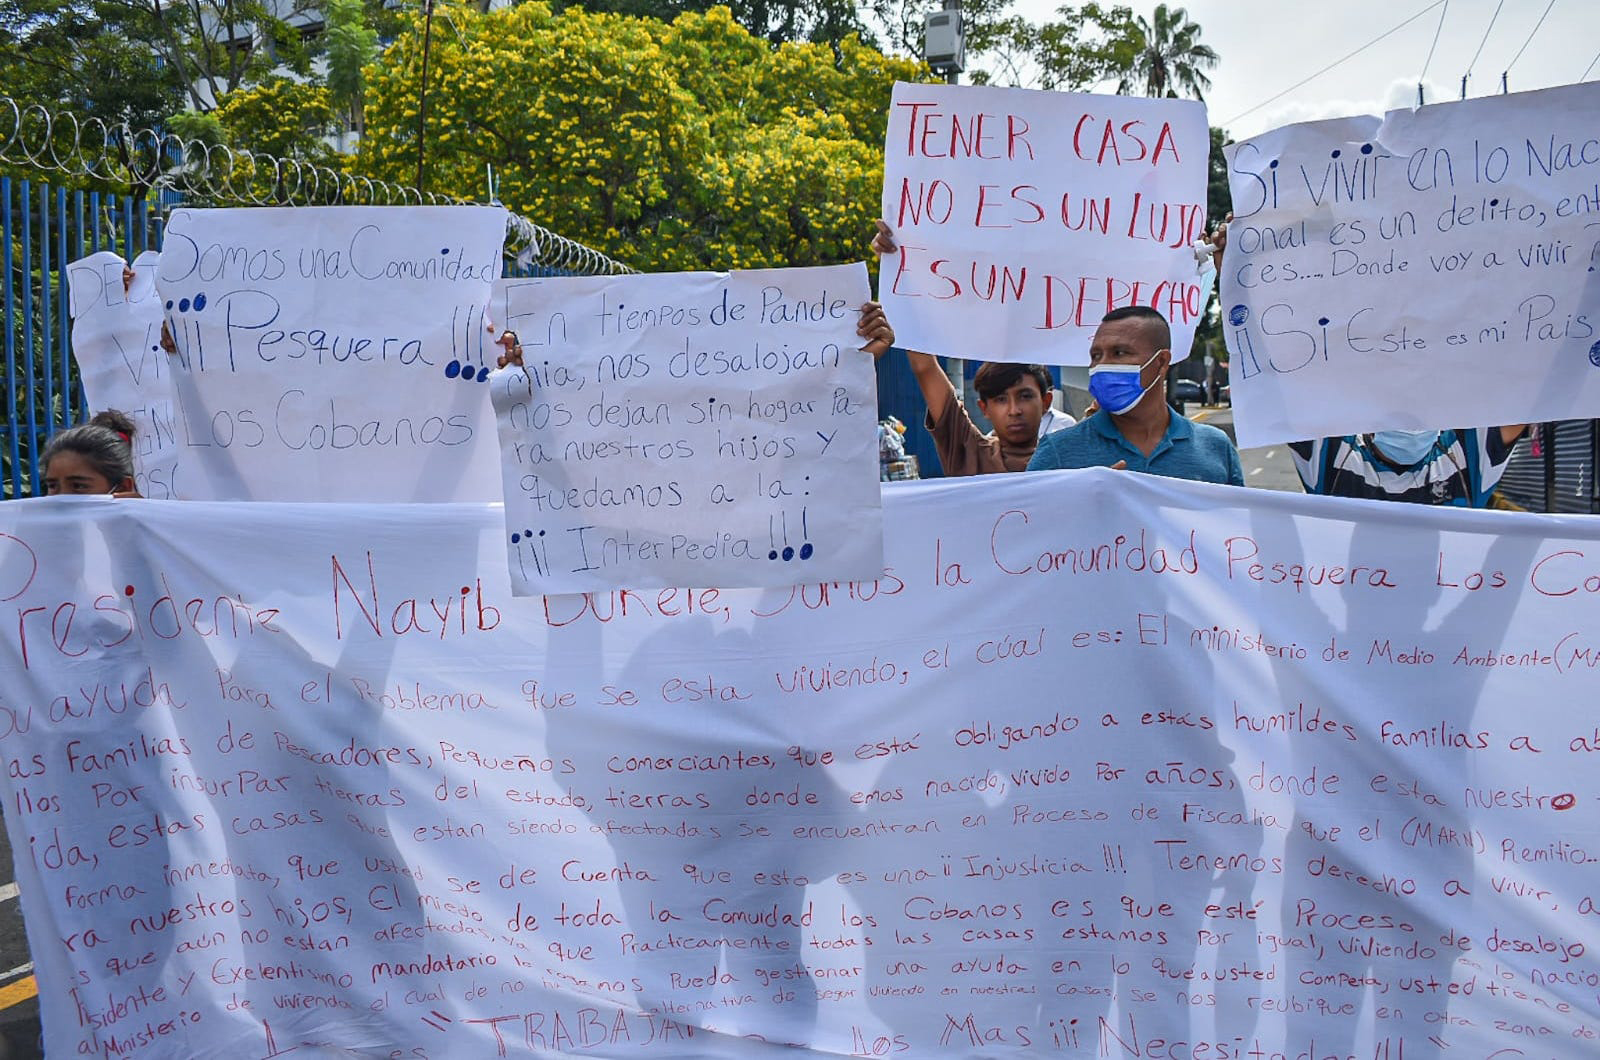 Somos una Comunidad
¡¡¡ Pesquera !!!
Los Cobanos
En tiempos de Pande-
mia, nos desalojan
nos dejan sin hogar Pa-
ra nuestros hijos y
quedamos a la:
¡¡¡ InterPedia !!!
TENER CASA
NO ES UN LUJO
ES UN DERECHO
Si vivir en lo Naci
onal es un delito, ent
ces.... Donde voy a vivir
¡Si Este es mi Pais
Presidente Nayib Bukele, Somos la Comunidad Pesquera Los Co
su ayuda Para el Problema que se esta viviendo, el cúal es: El ministerio de Medio Ambiente (MA
as Familias de Pescadores, Pequeños comerciantes, que está obligando a estas humildes familias a ab
llos Por insurPar tierras del estado, tierras donde emos nacido, vivido Por años, donde esta nuestro
ida, estas casas que estan siendo afectadas se encuentran en Proceso de Fiscalia que el (MARN) Remitio..
forma inmediata, que usted se de Cuenta que esto es una ¡¡ Injusticia !!! Tenemos derecho a vivir, a
ra nuestros hijos, El miedo de toda la Comuidad los Cobanos es que esté Proceso de desalojo
s que aún no estan afectadas, ya que Practicamente todas las casas estamos Por igual, viviendo en lo nacio
sidente y Exelentisimo mandatario le Pueda gestionar una ayuda en lo que a usted competa, usted tiene
al Ministerio de vivienda el cual de no alternativa de seguir viviendo en nuestras casas, se nos reubique en otra zona de
" TRABAJA los Mas ¡¡¡ Necesitados !!! "